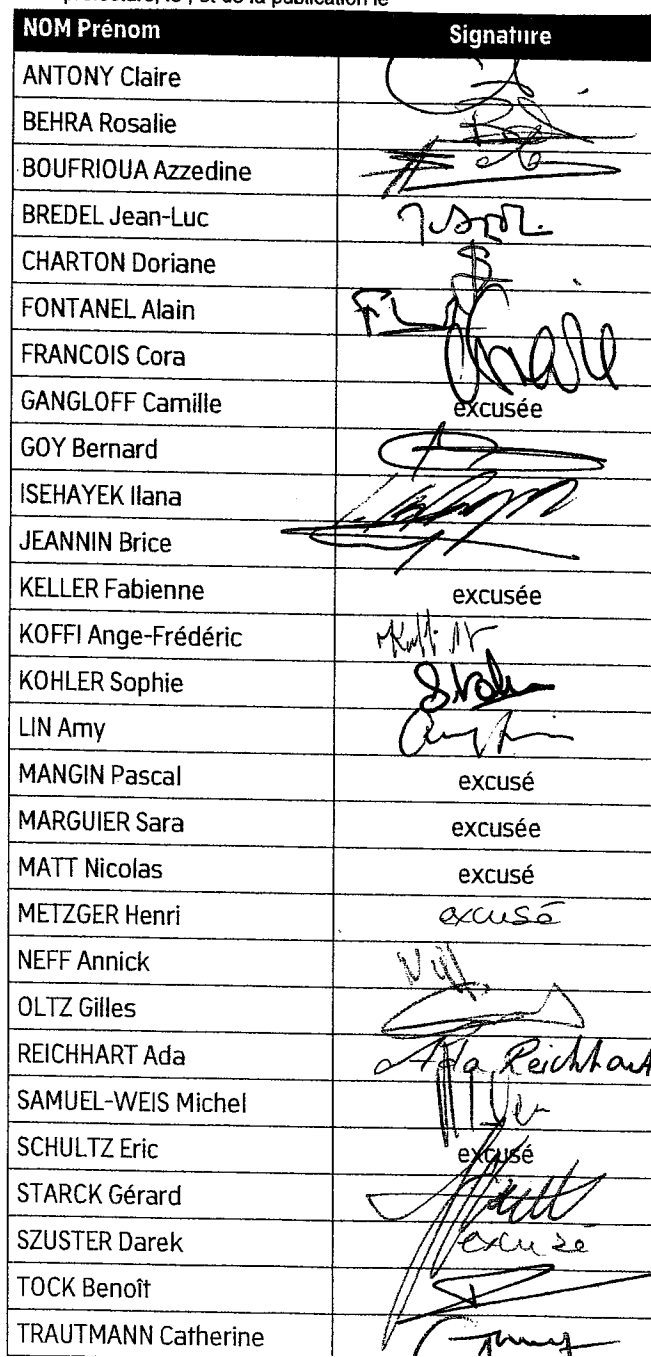 préfecture, le , et de la publication le
NOM Prénom Signature
ANTONY Claire
BEHRA Rosalie
BOUFRIOUA Azzedine
BREDEL Jean-Luc
CHARTON Doriane
FONTANEL Alain
FRANCOIS Cora
GANGLOFF Camille excusée
GOY Bernard
ISEHAYEK Ilana
JEANNIN Brice
KELLER Fabienne excusée
KOFFI Ange-Frédéric
KOHLER Sophie
LIN Amy
MANGIN Pascal excusé
MARGUIER Sara excusée
MATT Nicolas excusé
METZGER Henri excusé
NEFF Annick
OLTZ Gilles
REICHHART Ada Ada Reichhart
SAMUEL-WEIS Michel
SCHULTZ Eric excusé
STARCK Gérard
SZUSTER Darek excusé
TOCK Benoît
TRAUTMANN Catherine